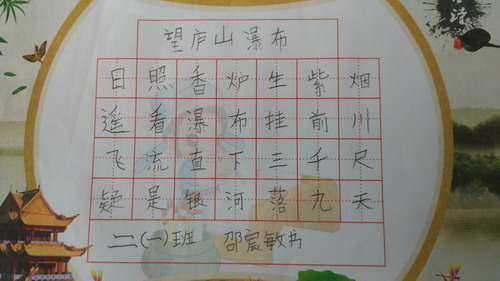 望庐山瀑布
日照香炉生紫烟
遥看瀑布挂前川
飞流直下三千尺
疑是银河落九天
二(一)班 邵宸敏书